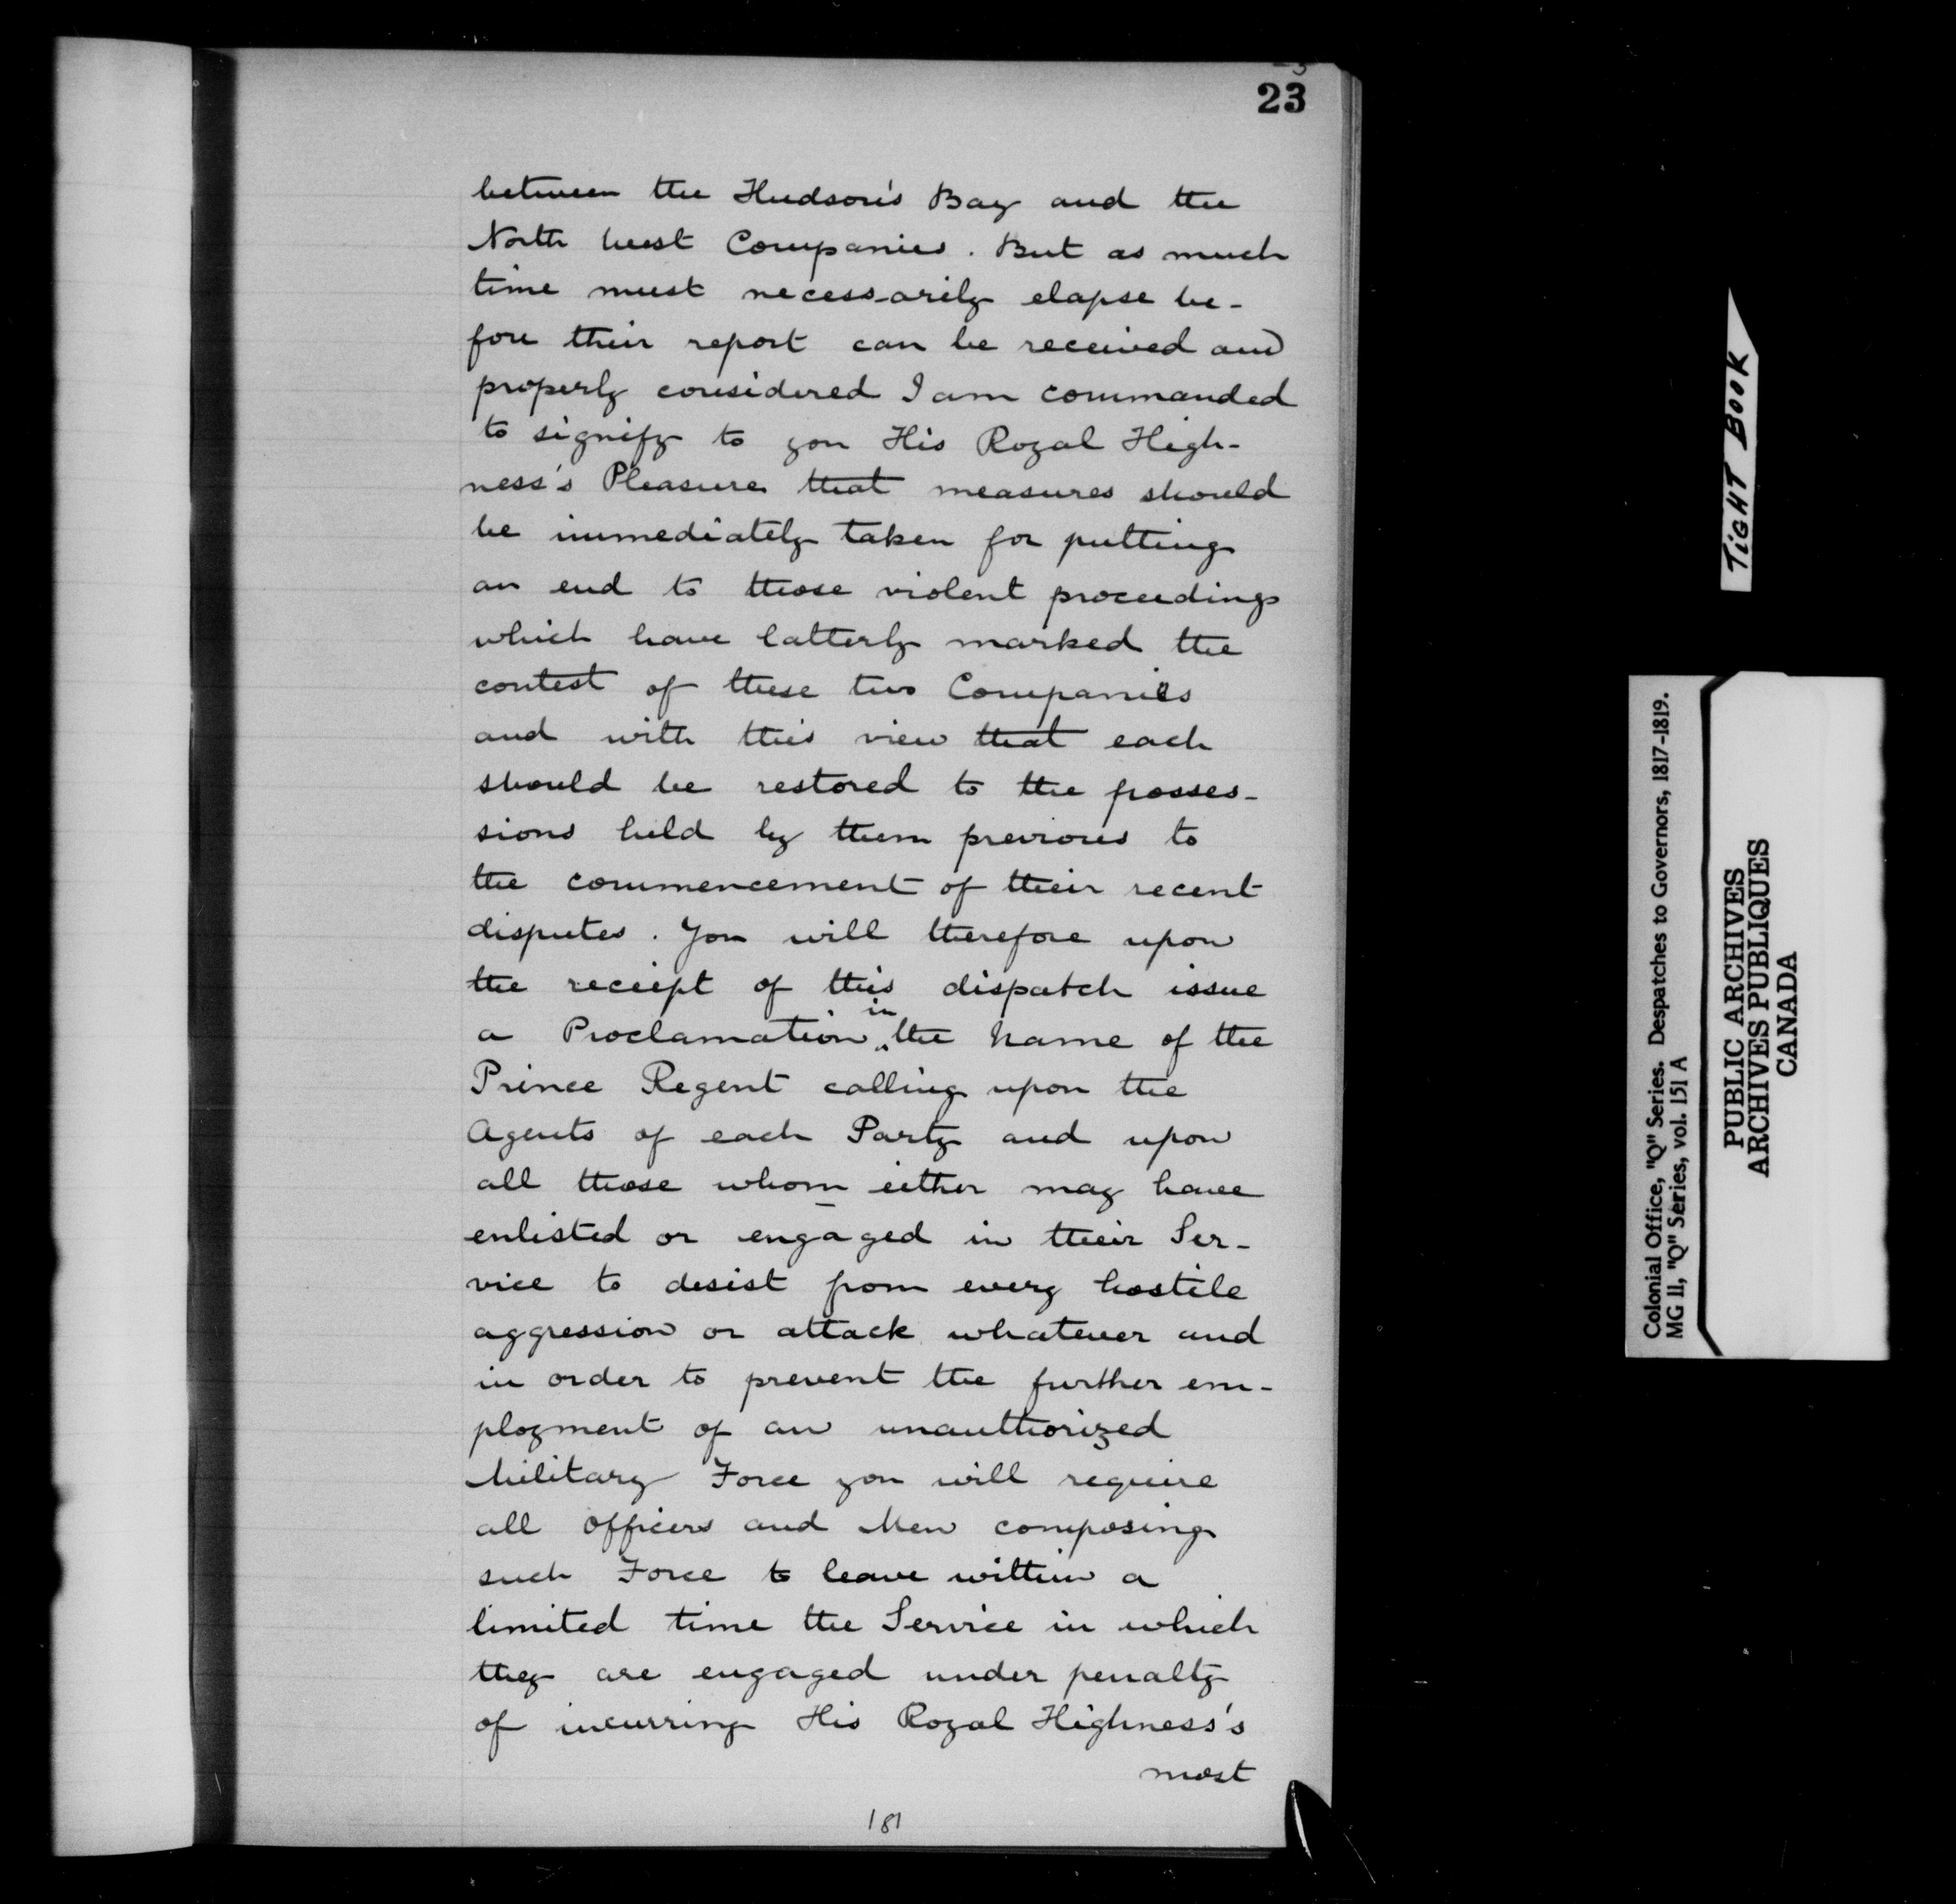 23
between the Hudson's Bay and the
North West Companies. But as much
time must necessarily elapse be-
fore their report can be received and
properly considered I am commanded
to signify to you His Royal High-
ness's Pleasure that measures should
be immediately taken for putting
an end to those violent proceedings
which have latterly marked the
contest of these two Companies
and with this view that each
should be restored to the posses-
sions held by them previous to
the commencement of their recent
disputes. You will therefore upon
the receipt of this dispatch issue
a Proclamation in the Name of the
Prince Regent calling upon the
Agents of each Party and upon
all those whom either may have
enlisted or engaged in their Ser-
vice to desist from every hostile
aggression or attack whatever and
in order to prevent the further em-
ployment of an unauthorized
Military Force you will require
all Officers and Men composing
such Force to leave within a
limited time the Service in which
they are engaged under penalty
of incurring His Royal Highness's
most
181
TIGHT BOOK
Colonial Office, "Q" Series. Despatches to Governors, 1817-1819.
MG 11, "Q" Series, vol. 151 A
PUBLIC ARCHIVES
ARCHIVES PUBLIQUES
CANADA